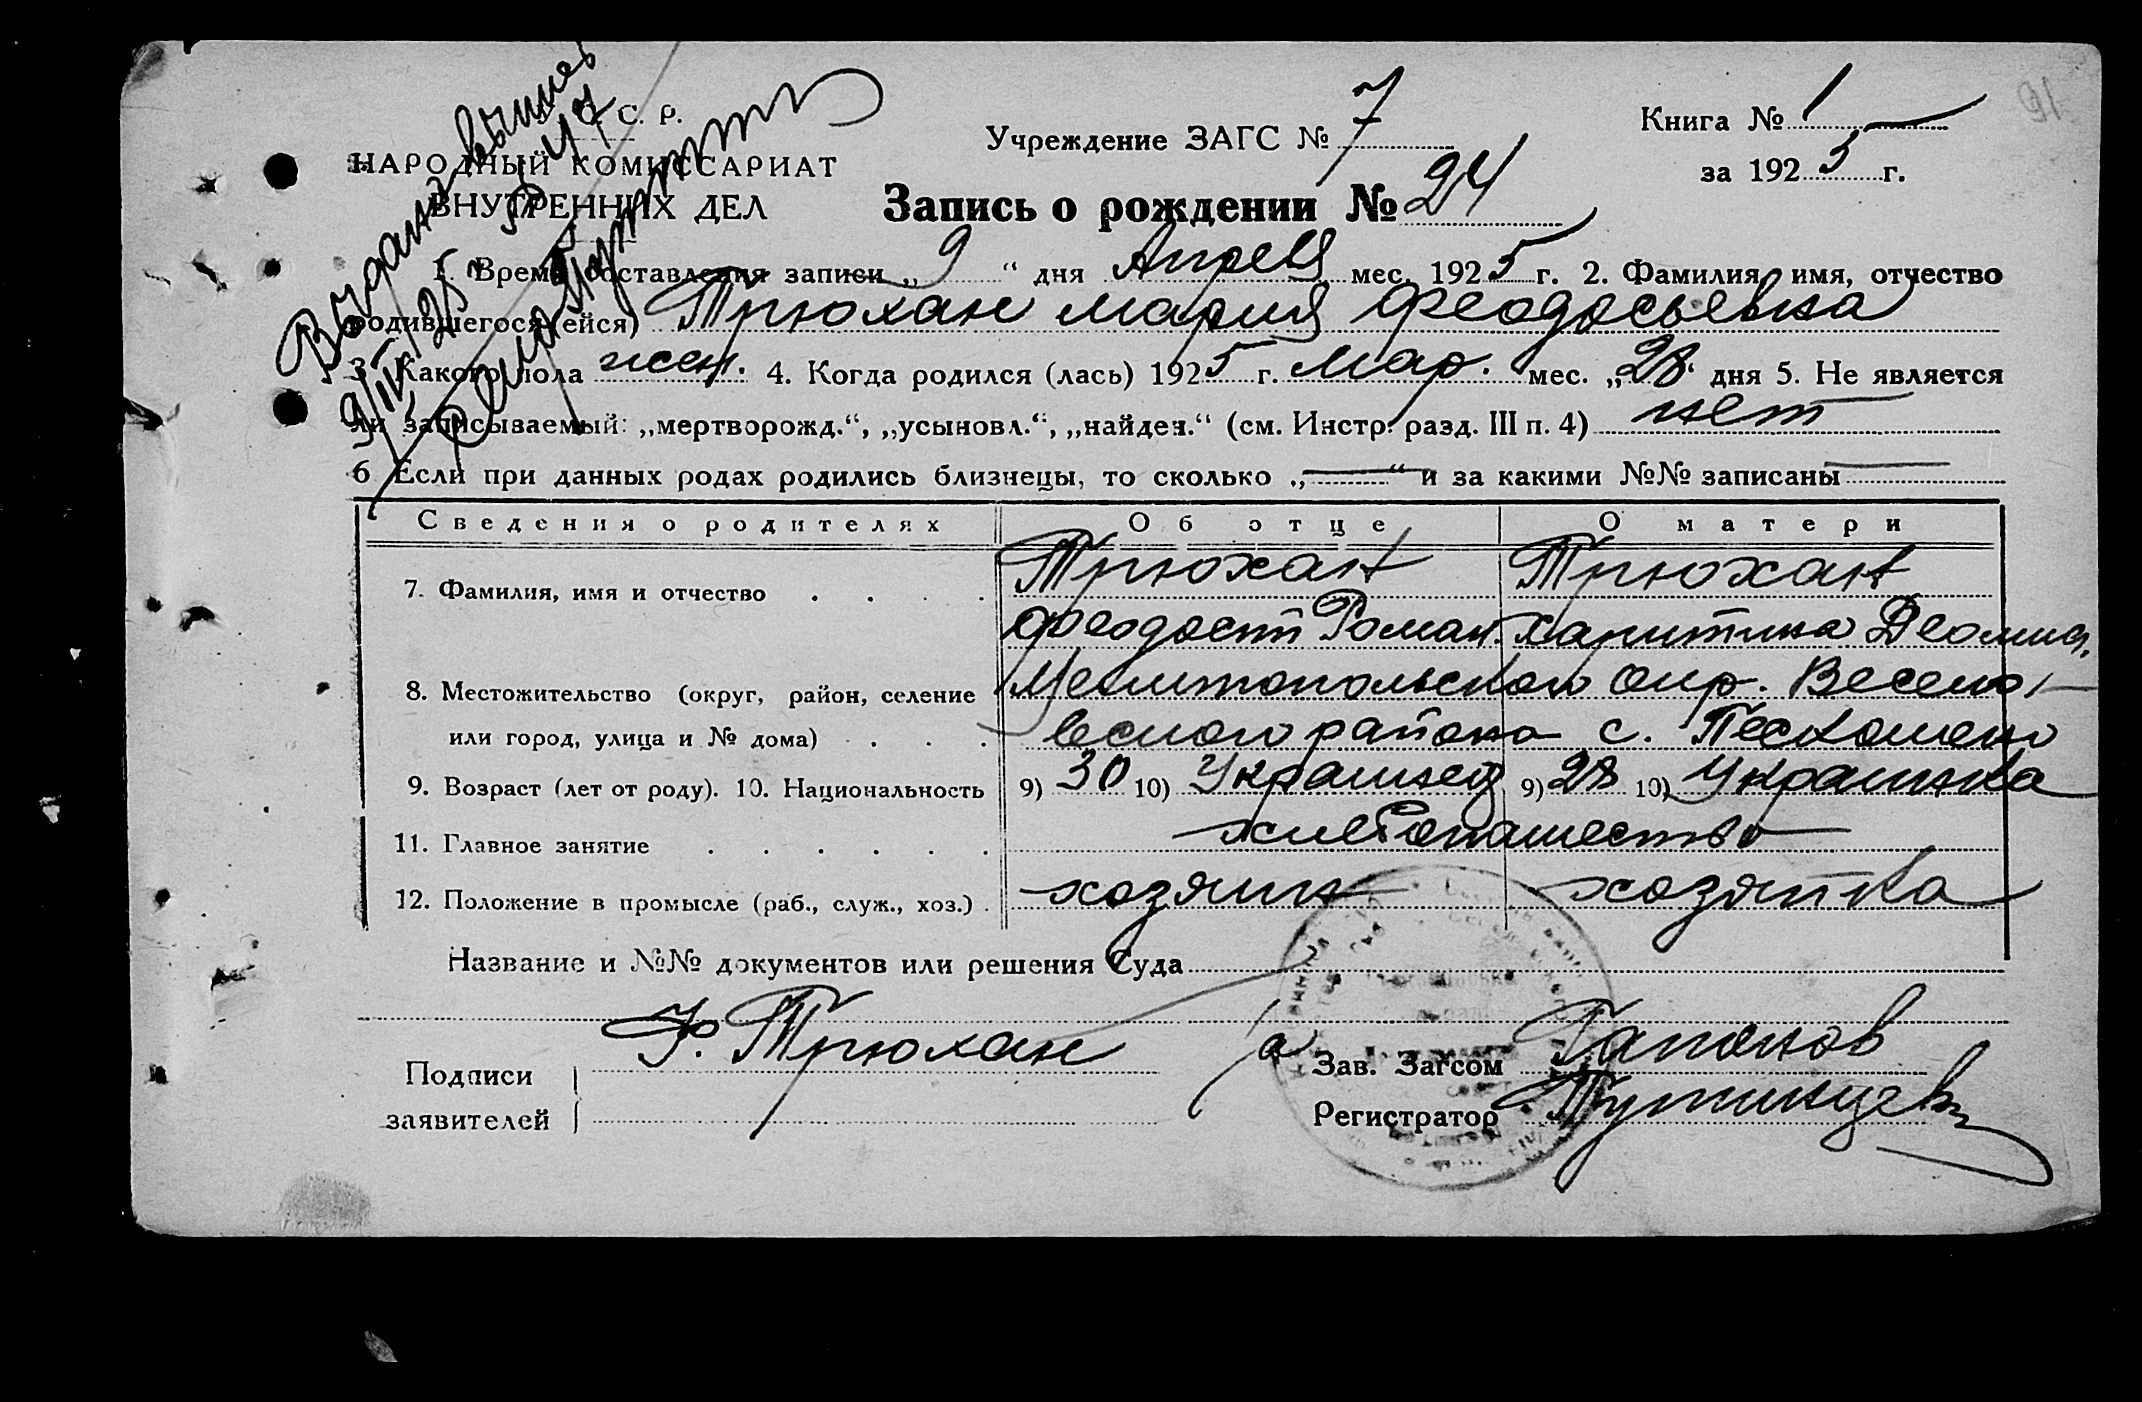 С. Р.
НАРОДНЫЙ КОМИССАРИАТ
ВНУТРЕННИХ ДЕЛ
Учреждение ЗАГС № 7
Книга № 1
за 1925 г.
Запись о рождении № 24
Выдана выпись
9/IV 25 г. № 47
1. Время составления записи „9“ дня Апреля мес. 1925 г. 2. Фамилия, имя, отчество
родившегося (ейся) Трюхан Мария Феодосьевна
3. Какого пола жен. 4. Когда родился (лась) 1925 г. Мар. мес. „28“ дня 5. Не является
ли записываемый: „мертворожд.“, „усыновл.“, „найден.“ (см. Инстр. разд. III п. 4) нет
6 Если при данных родах родились близнецы, то сколько „—“ и за какими №№ записаны —
Сведения о родителях Об отце О матери
7. Фамилия, имя и отчество . . . . Трюхан Трюхан
Феодосий Роман. Харитина
8. Местожительство (округ, район, селение Мелитопольского Окр. Весело-
или город, улица и № дома) . . . вского района с.
9. Возраст (лет от роду). 10. Национальность 9) 30 10) Украинец 9) 28 10) Украинка
11. Главное занятие . . . . . . хлебопашество
12. Положение в промысле (раб., служ., хоз.) . хозяин хозяйка
Название и №№ документов или решения Суда
Подписи Ф. Трюхан Зав. Загсом Гапонов
заявителей Регистратор